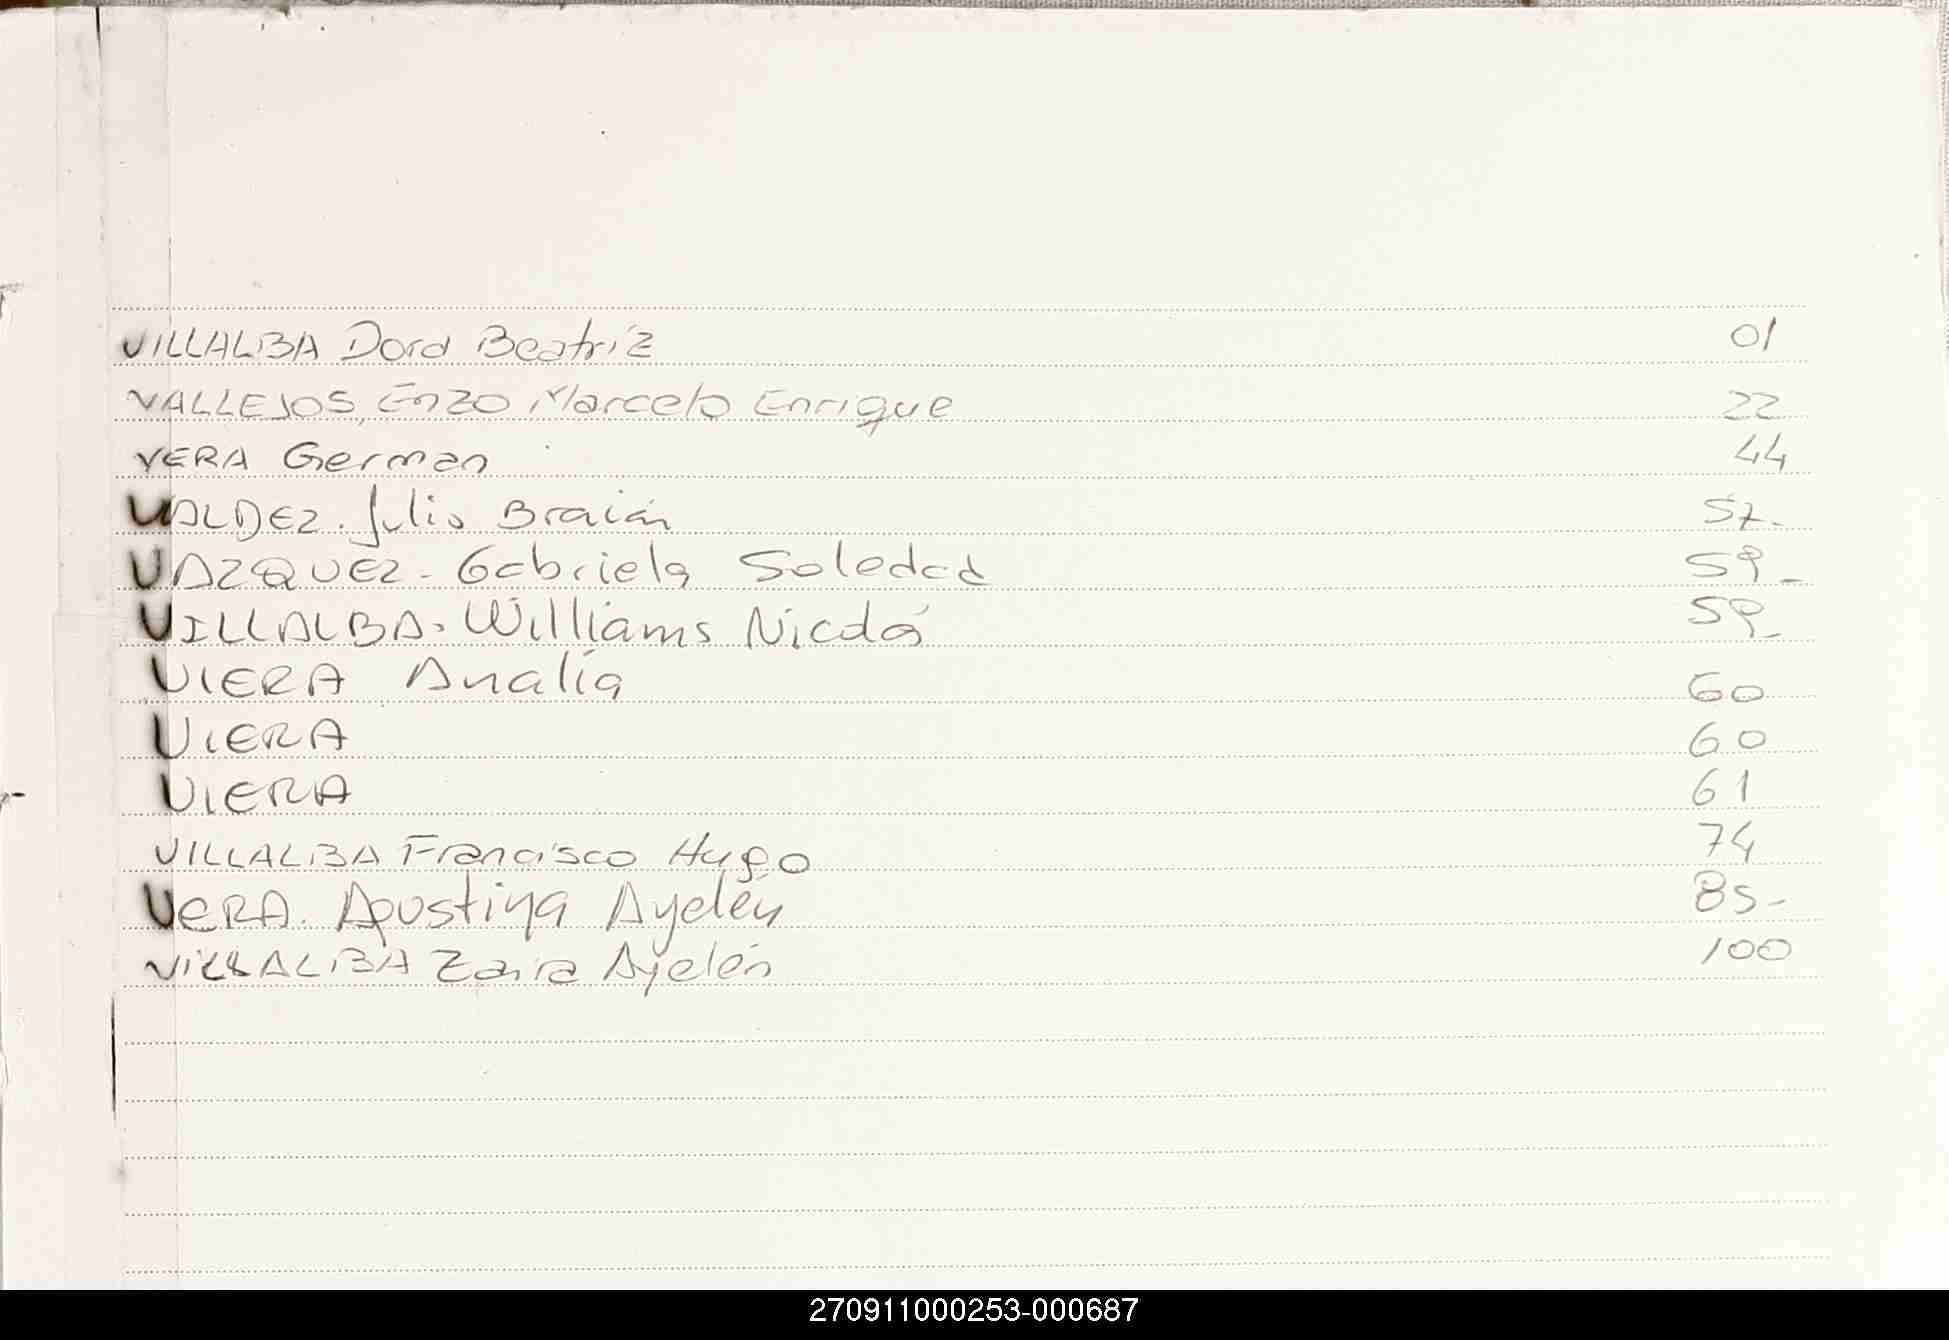 VILLALBA Dora Beatriz 01
VALLEJOS, Enzo Marcelo Enrique 22
VERA German 44
VALDEZ. Julio Braián 57-
VAZQUEZ - Gabriela Soledad 59-
VILLALBA. Williams Nicolás 59-
VIERA Analía 60
VIERA 60
VIERA 61
VILLALBA Francisco Hugo 74
VERA. Agustina Ayelén 85-
VILLALBA Zaira Ayelén 100
270911000253-000687